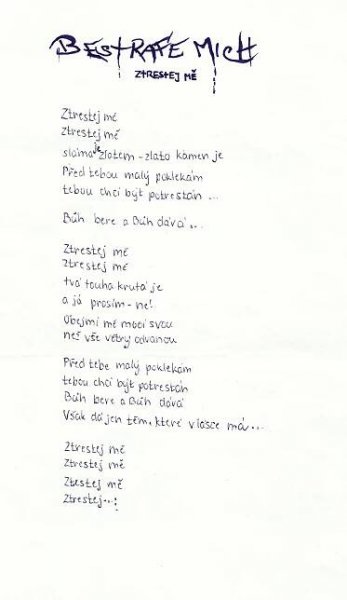 BESTRAFE MICH
ZTRESTEJ MĚ
Ztrestej mě
Ztrestej mě
sláma je zlatem - zlato kámen je
Před tebou malý poklekám
tebou chci být potrestán ...
Bůh bere a Bůh dává ...
Ztrestej mě
Ztrestej mě
tvá touha krutá je
a já prosím - ne!
Obejmi mě mocí svou
než vše větry odvanou
Před tebe malý poklekám
tebou chci být potrestán
Bůh bere a Bůh dává
Však dá jen těm, které v lásce má...
Ztrestej mě
Ztrestej mě
Ztestej mě
Ztrestej...!